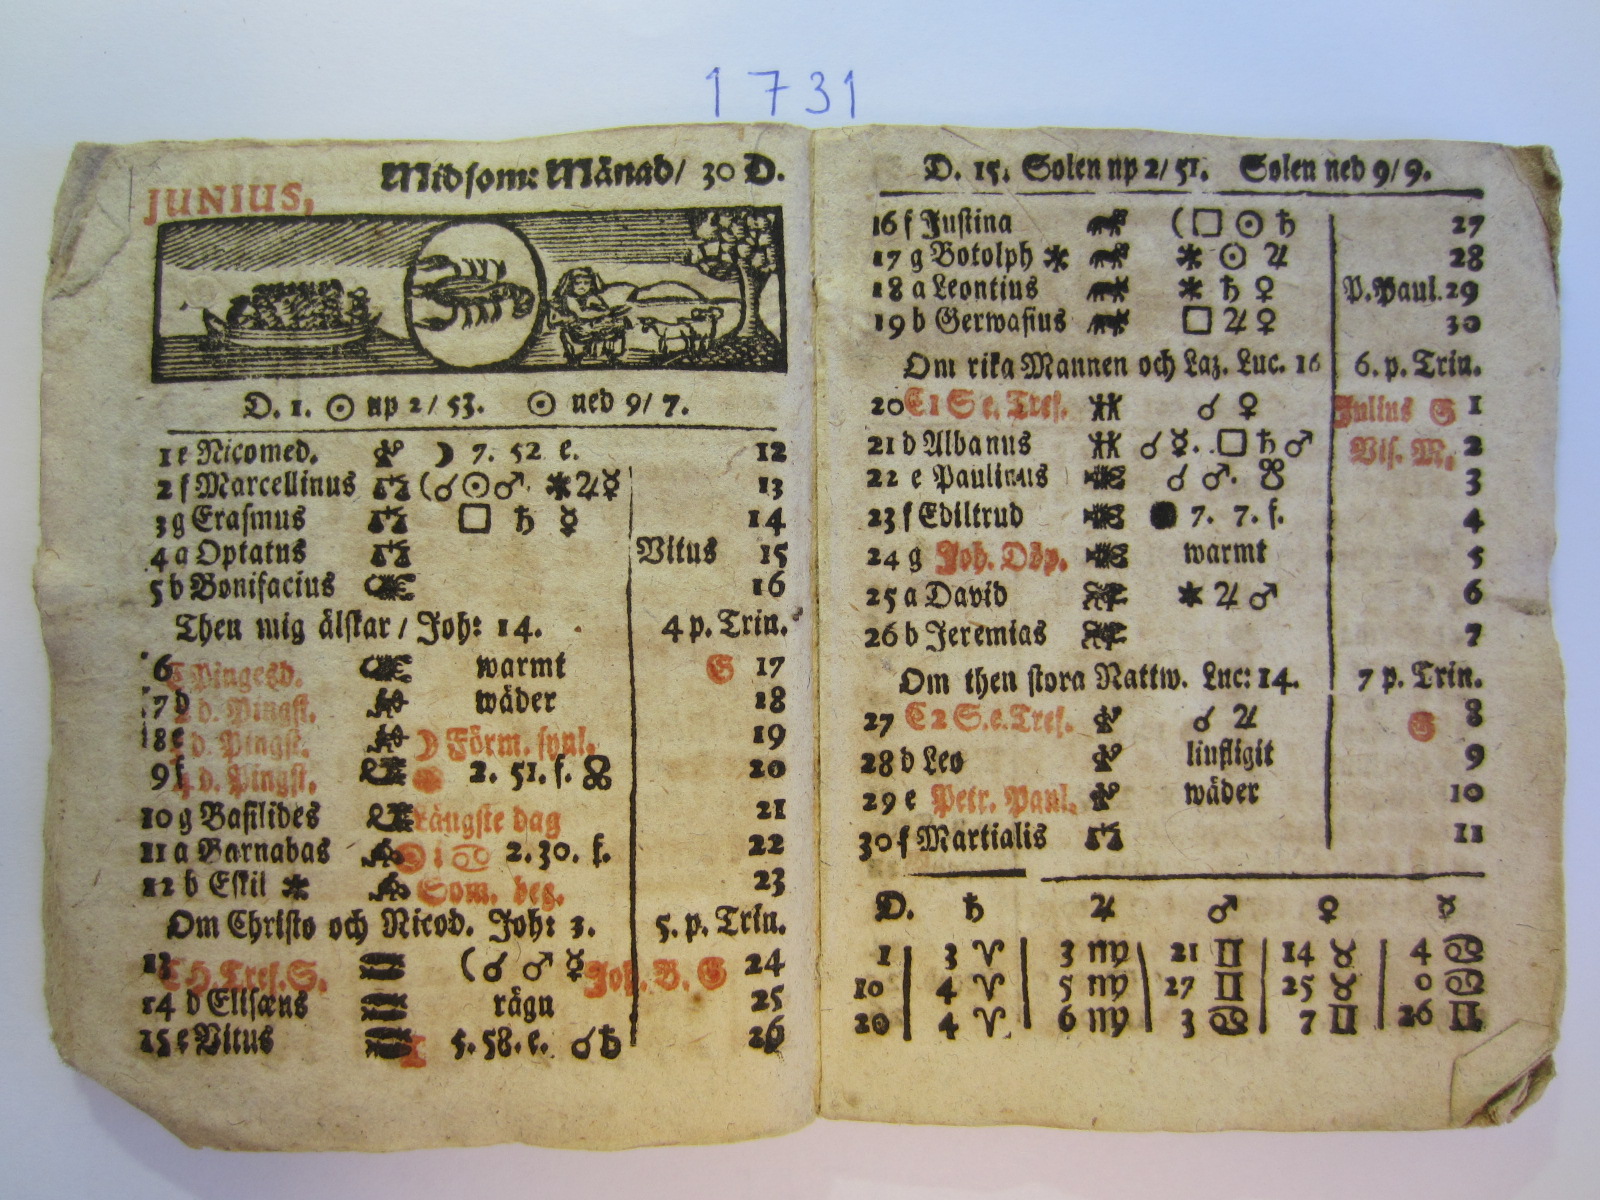 1731
Midsom: Månad/ 30 D.
JUNIUS,
D. 1. ☉ up 2/ 53. ☉ ned 9/ 7.
1 e Nicomed. ♍ ☽ 7. 52 e. 12
2 f Marcellinus ♎ (☌ ☉ ♂. ⚹ ♃ ☿ 13
3 g Erasmus ♎ □ ♄ ☿ 14
4 a Optatus ♎ Vitus 15
5 b Bonifacius ♏ 16
Then mig älskar / Joh: 14. 4 p. Trin.
6 C Pingesd. ♏ warmt G 17
7 d 2 d. Pingst. wäder 18
8 e d. Pingst. ☽ Förm. synl. 19
9 f 4 d. Pingst. 2. 51. f. ☊ 20
10 g Basilides Längste dag 21
11 a Barnabas ☉ i ♋ 2. 30. f. 22
12 b Eskil ⚹ Som. beg. 23
Om Christo och Nicod. Joh: 3. 5. p. Trin.
13 C H. Tref. S. (☌ ♂ ☿ Joh. B. G 24
14 d Elisæus rägn 25
15 e Vitus 5. 58. e. ☌ ♄ 26
D. 15. Solen up 2/ 51. Solen ned 9/ 9.
16 f Justina (□ ☉ ♄ 27
17 g Botolph ⚹ ⚹ ☉ ♃ 28
18 a Leontius ⚹ ♄ ♀ P. Paul. 29
19 b Gerwasius □ ♃ ♀ 30
Om rika Mannen och Laz. Luc. 16 6. p. Trin.
20 C 1 S e. Tref. ♊ ☌ ♀ Julius G 1
21 d Albanus ♊ ☌ ☿. □ ♄ ♂ Vis. M. 2
22 e Paulinus ♋ ☌ ♂. ☋ 3
23 f Ediltrud ♋ ● 7. 7. f. 4
24 g Joh. Döp. ♋ warmt 5
25 a David ♌ ⚹ ♃ ♂ 6
26 b Jeremias ♌ 7
Om then stora Nattw. Luc: 14. 7 p. Trin.
27 C 2 S. e. Tref. ♍ ☌ ♃ G 8
28 d Leo ♍ liufligit 9
29 e Petr. Paul. ♍ wäder 10
30 f Martialis ♎ 11
D. ♄ ♃ ♂ ♀ ☿
1 3 ♈ 3 ♍ 21 ♊ 14 ♉ 4 ♋
10 4 ♈ 5 ♍ 27 ♊ 25 ♉ 0 ♋
20 4 ♈ 6 ♍ 3 ♋ 7 ♊ 26 ♊